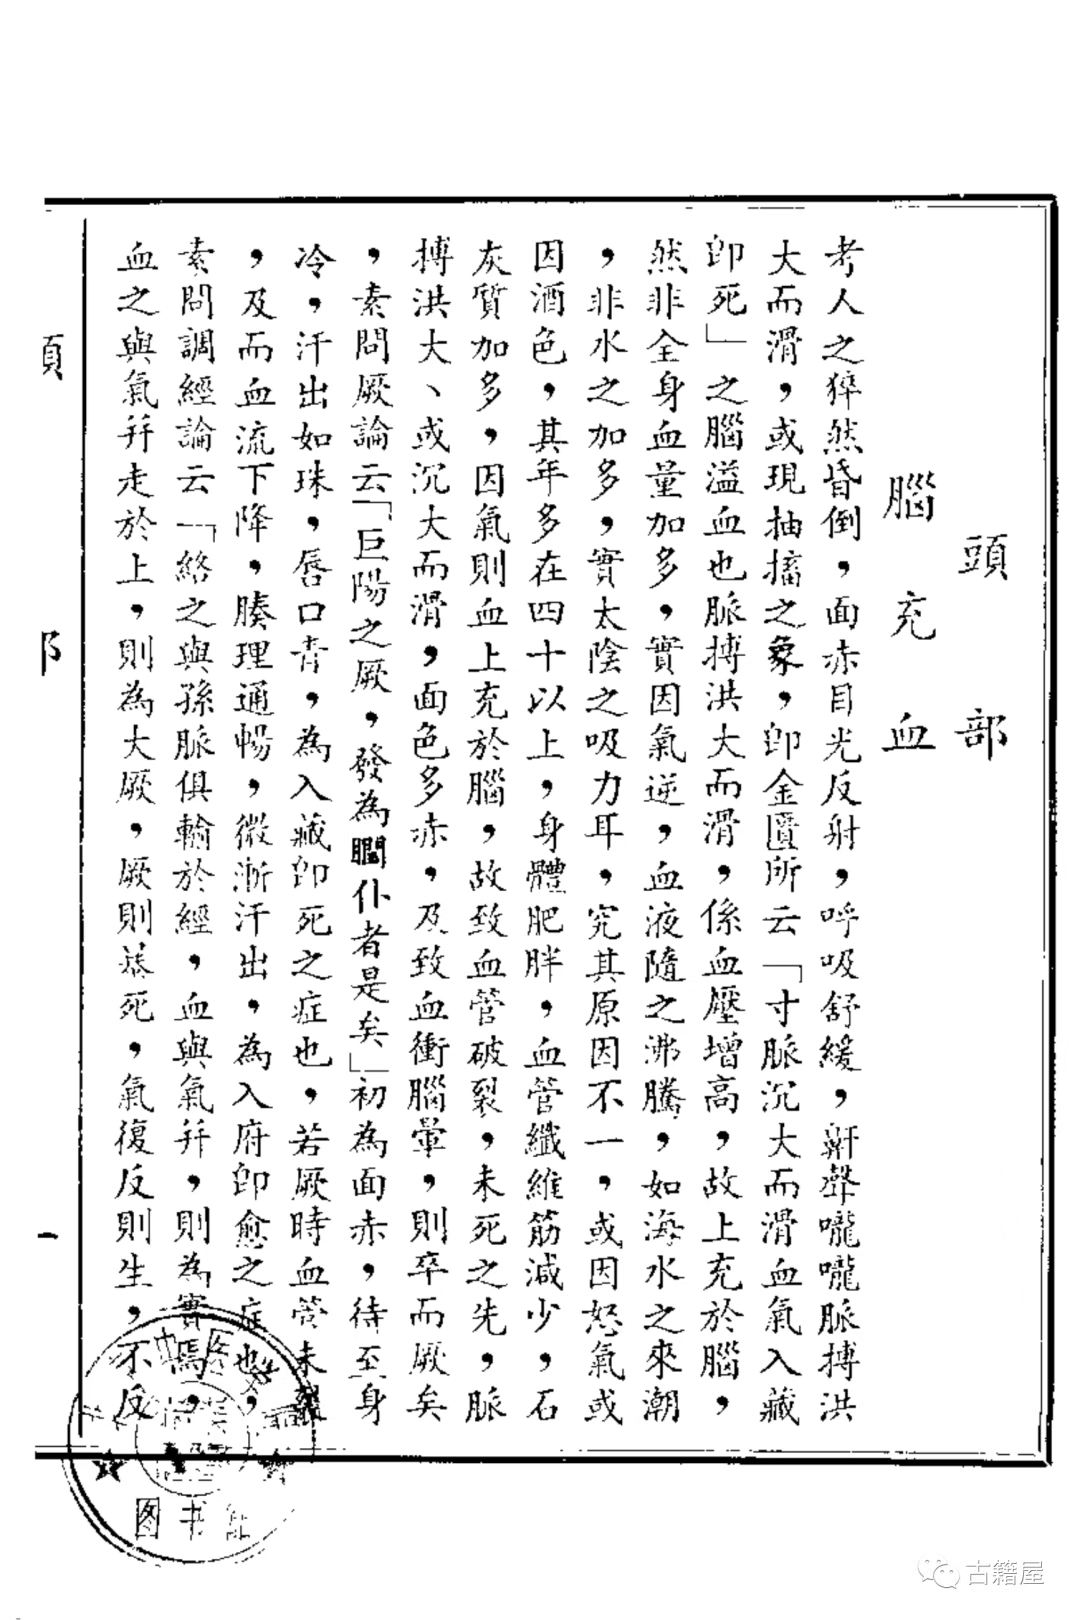 頭部
腦充血
考人之猝然昏倒，面赤目光反射，呼吸舒緩，鼾聲嚨嚨脈搏洪
大而滑，或現抽搐之象，卽金匱所云「寸脈沉大而滑血氣入藏
卽死」之腦溢血也脈搏洪大而滑，係血壓增高，故上充於腦，
然非全身血量加多，實因氣逆，血液隨之沸騰，如海水之來潮
，非水之加多，實太陰之吸力耳，究其原因不一，或因怒氣或
因酒色，其年多在四十以上，身體肥胖，血管纖維筋減少，石
灰質加多，因氣則血上充於腦，故致血管破裂，未死之先，脈
搏洪大、或沉大而滑，面色多赤，及致血衝腦暈，則卒而厥矣
，素問厥論云「巨陽之厥，發為瞤仆者是矣」初為面赤，待至身
冷，汗出如珠，唇口青，為入藏卽死之症也，若厥時血管未裂
，及而血流下降，腠理通暢，微漸汗出，為入府卽愈之症也，
素問調經論云「絡之與孫脈俱輸於經，血與氣幷，則為實焉，
血之與氣幷走於上，則為大厥，厥則暴死，氣復反則生，不反
頭
部
一
图书馆
古籍屋